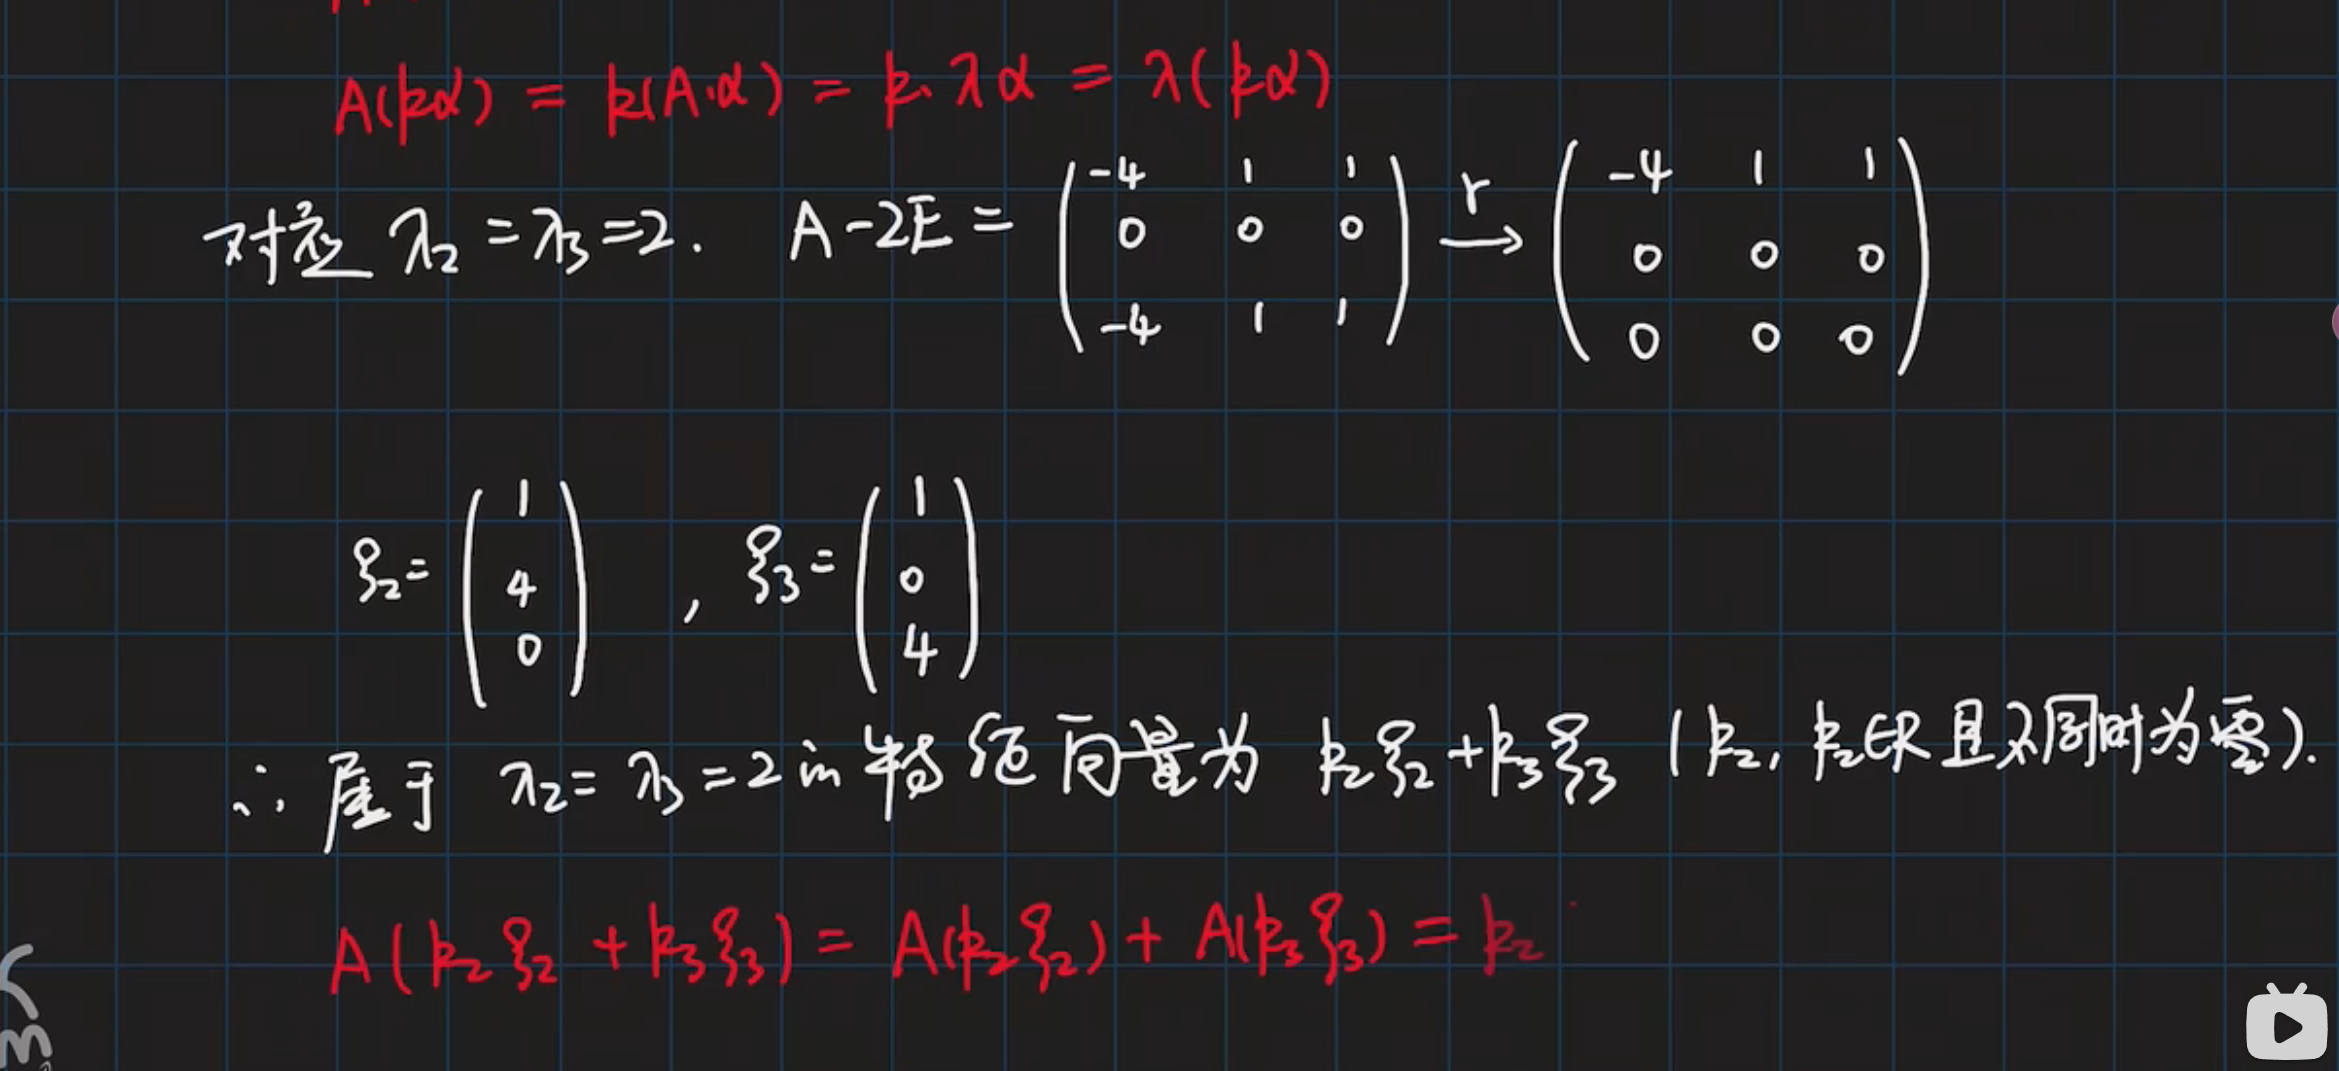 A(kα) = k(A·α) = k·λα = λ(kα)
对应 λ₂ = λ₃ = 2. A-2E = (-4 1 1; 0 0 0; -4 1 1) r→ (-4 1 1; 0 0 0; 0 0 0)
ξ₂ = (1; 4; 0) , ξ₃ = (1; 0; 4)
∴ 属于 λ₂ = λ₃ = 2 的 特征向量为 k₂ξ₂ + k₃ξ₃ (k₂, k₂∈R 且不同时为零).
A(k₂ξ₂ + k₃ξ₃) = A(k₂ξ₂) + A(k₃ξ₃) = k₂